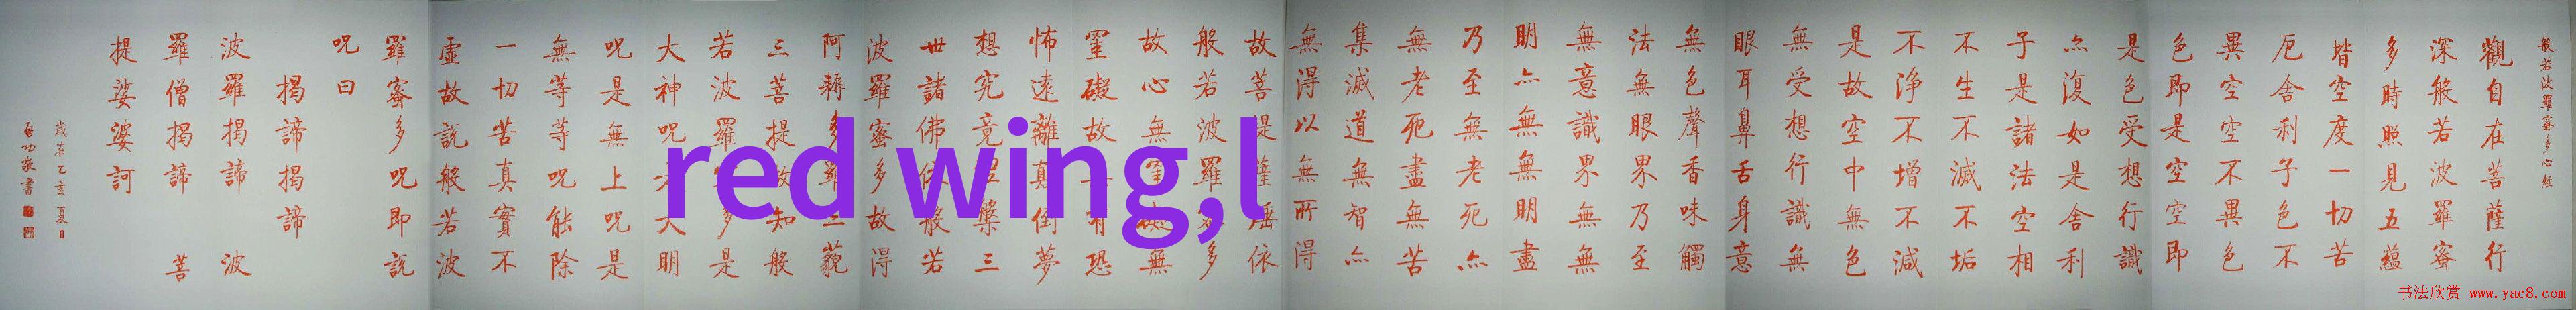 般若波羅蜜多心經
觀自在菩薩行
深般若波羅蜜
多時照見五蘊
皆空度一切苦
厄舍利子色不
異空空不異色
色即是空空即
是色受想行識
亦復如是舍利
子是諸法空相
不生不滅不垢
不淨不增不減
是故空中無色
無受想行識無
眼耳鼻舌身意
無色聲香味觸
法無眼界乃至
無意識界無無
明亦無無明盡
乃至無老死亦
無老死盡無苦
集滅道無智亦
無得以無所得
故菩提薩埵依
般若波羅蜜多
故心無罣礙無
罣礙故無有恐
怖遠離顛倒夢
想究竟涅槃三
世諸佛依般若
波羅蜜多故得
阿耨多羅三藐
三菩提故知般
若波羅蜜多是
大神呪是大明
呪是無上呪是
無等等呪能除
一切苦真實不
虛故說般若波
羅蜜多呪即說
呪曰
揭諦揭諦
波羅揭諦 波
羅僧揭諦 菩
提娑婆訶
歲在乙亥夏日
啓功敬書
red wing,l
书法欣赏 www.yac8.com